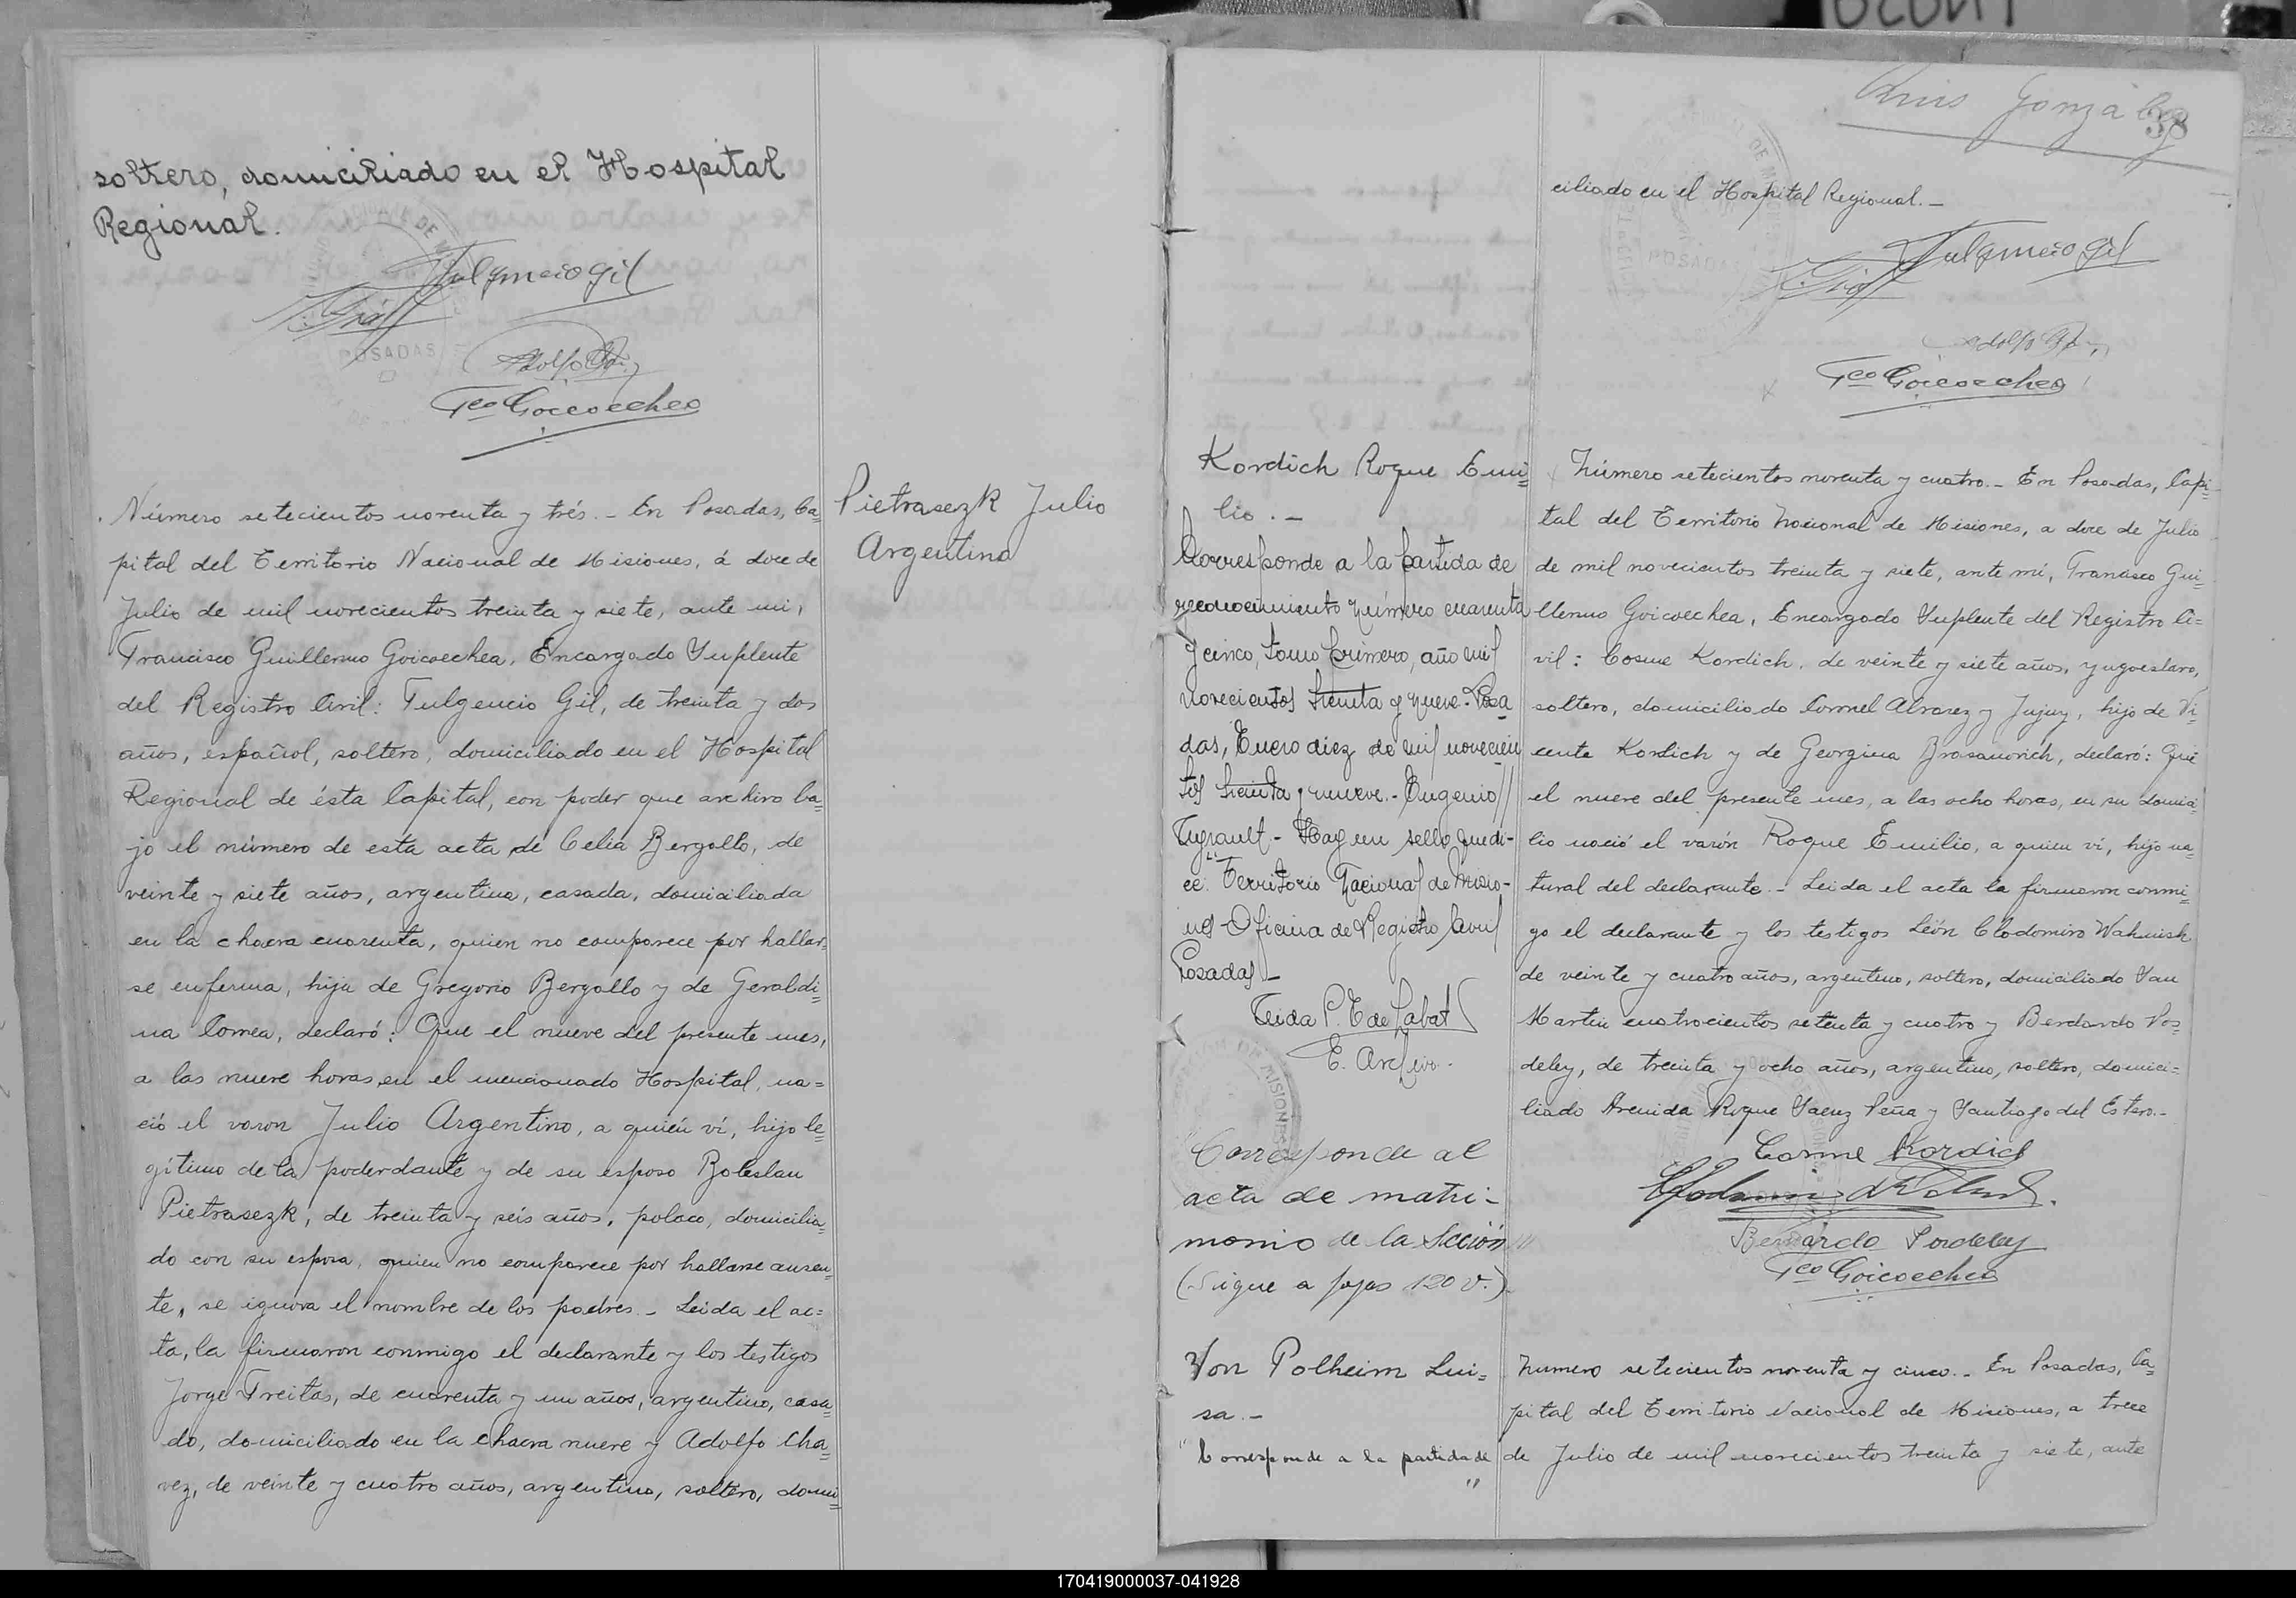 soltero, domiciliado en el Hospital
Regional.
Fulgencio Gil
POSADAS
Adolfo
Fco Goicoechea
Número setecientos noventa y trés. - En Posadas, Ca=
pital del Territorio Nacional de Misiones, á doce de
Julio de mil novecientos treinta y siete, ante mi,
Francisco Guillermo Goicoechea, Encargado Suplente
del Registro Civil: Fulgencio Gil, de treinta y dos
años, español, soltero, domiciliado en el Hospital
Regional de ésta Capital, con poder que archivo ba=
jo el número de esta acta de Celia Bergallo, de
veinte y siete años, argentina, casada, domiciliada
en la chacra cuarenta, quien no comparece por hallar=
se enferma, hija de Gregorio Bergallo y de Geraldi=
na Correa, declaró: Que el nueve del presente mes,
a las nueve horas, en el mencionado Hospital, na=
ció el varon Julio Argentino, a quién ví, hijo le=
gítimo de la poderdante y de su esposo Boleslau
Pietrasezk, de treinta y seis años, polaco, domicilia=
do con su esposa, quien no comparece por hallarse ausen=
te, se ignora el nombre de los padres. - Leida el ac=
ta, la firmaron conmigo el declarante y los testigos
Jorge Freitas, de cuarenta y un años, argentino, casa=
do, domiciliado en la chacra nueve y Adolfo Cha=
vez, de veinte y cuatro años, argentino, soltero, domi=
Pietrasezk Julio
Argentino
Luis González
38
ciliado en el Hospital Regional. -
Fulgencio Gil
Adolfo
Fco Goicoechea
Kordich Roque Emi=
lio. -
Corresponde a la partida de
reconocimiento número cuarenta
y cinco, tomo primero, año mil
novecientos treinta y nueve. - Posa
das, Enero diez de mil novecien
tos treinta y nueve. - Eugenio //
- Hay un sello que di-
ce: "Territorio Nacional de Misio-
nes - Oficina de Registro Civil
Posadas -
de Labat
E. Archivo.
Corresponde al
acta de matri-
monio de la Sección ///
(Sigue a fojas 120 v.)
Número setecientos noventa y cuatro. - En Posadas, Capi=
tal del Territorio Nacional de Misiones, a doce de Julio
de mil novecientos treinta y siete, ante mí, Francisco Gui=
llermo Goicoechea, Encargado Suplente del Registro Ci=
vil: Cosme Kordich, de veinte y siete años, yugoeslavo,
soltero, domiciliado Coronel Alvarez y Jujuy, hijo de Vi=
cente Kordich y de Georgina Brasanovich, declaró: Que
el nueve del presente mes, a las ocho horas, en su domici=
lio nació el varón Roque Emilio, a quien ví, hijo na=
tural del declarante. - Leida el acta la firmaron conmi=
go el declarante y los testigos León Clodomiro Wahnish
de veinte y cuatro años, argentino, soltero, domiciliado San
Martin cuatrocientos setenta y cuatro y Berdardo Pos=
deley, de treinta y ocho años, argentino, soltero, domici=
liado Avenida Roque Saenz Peña y Santiago del Estero. -
Cosme Kordich
Bernardo Posdeley
Fco Goicoechea
Von Polheim Lui=
sa. -
"Corresponde a la partida de
"
Número setecientos noventa y cinco. - En Posadas, Ca=
pital del Territorio Nacional de Misiones, a trece
de Julio de mil novecientos treinta y siete, ante
170419000037-041928